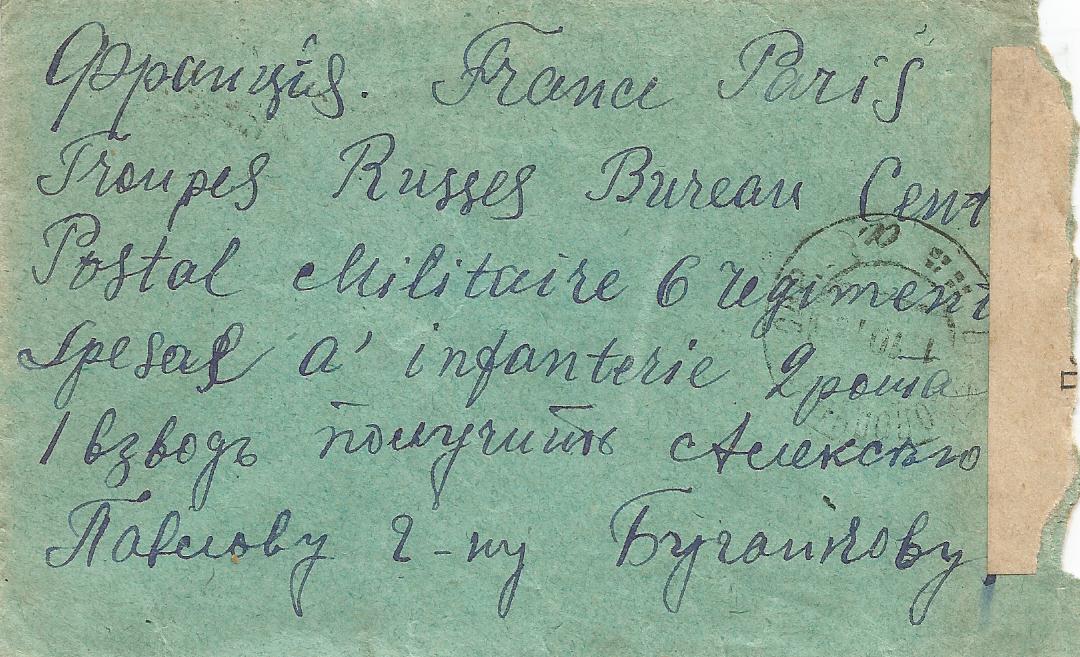 Франція. France Paris
Troupes Russes Bureau Cent
Postal Militaire 6 regiment
Spesal a' infanterie 2 рота
1 взводъ получить Алексѣю
Павлову г-ну